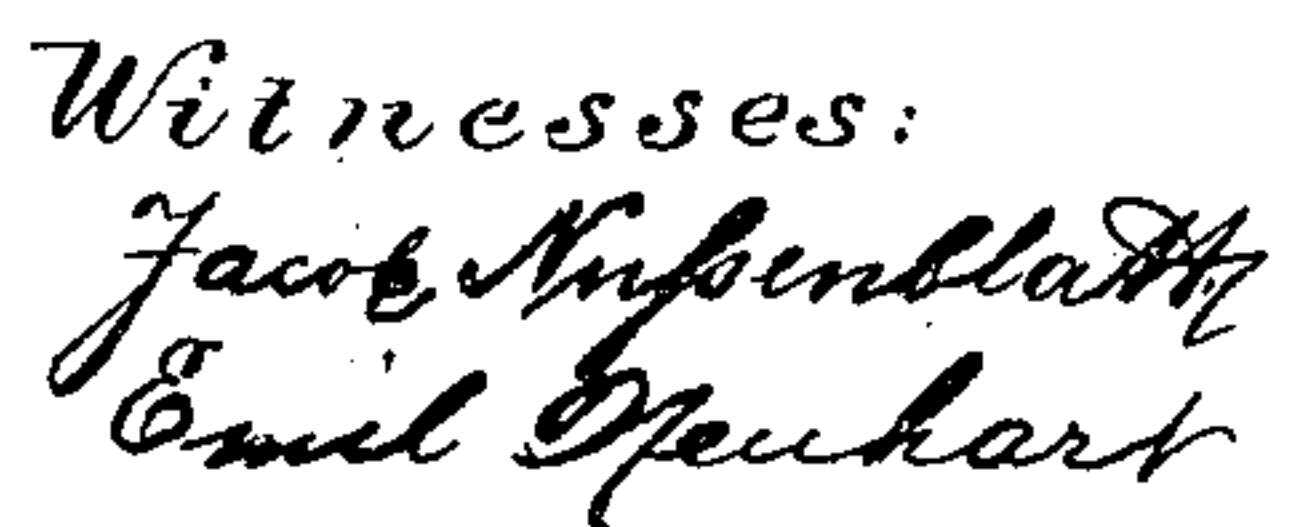 Witnesses:
Jacob Nußenblatt,
Emil Neuhart